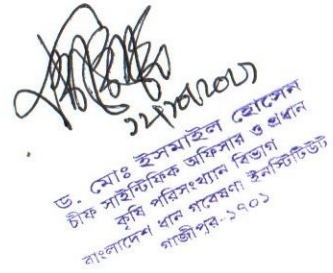 ড. মোঃ ইসমাইল হোসেন
চীফ সাইন্টিফিক অফিসার ও প্রধান
কৃষি পরিসংখ্যান বিভাগ
বাংলাদেশ ধান গবেষণা ইনস্টিটিউট
গাজীপুর-১৭০১